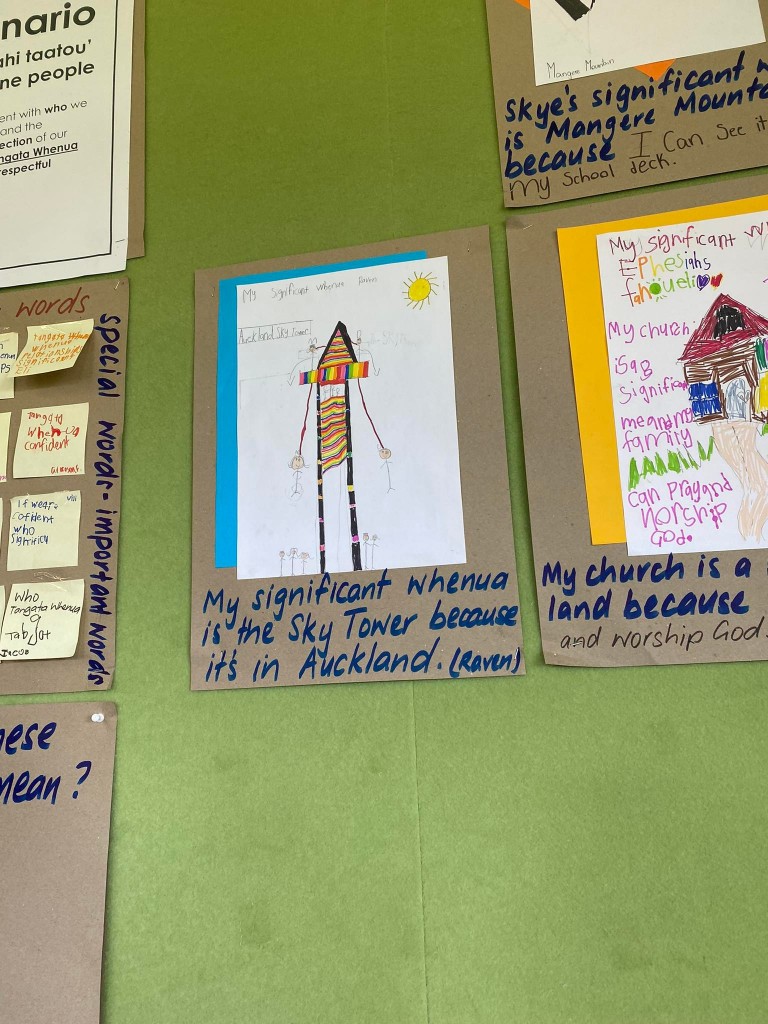 nario
ahi taatou'
ne people
ent with who we
and the
ection of our
ngata Whenua
respectful
words
special words - important words
Tangata Whenua
whenua
relationships
significant
Tangata
Whenua
confident
If wear
cofident
who
Significy
Who
Tangata Whenua
Jacob
hese
mean?
My Significant whenua Raven
Auckland Sky Tower
My significant whenua
is the Sky Tower because
it's in Auckland. (Raven)
Mangere Mountain
Skye's significant w
is Mangere Mounta
because I Can See it
My School deck.
My significant Wh
EPhesiahs
fahoueli
My church
is a
significa
meand my
family
can Pray and
Worship
God.
My church is a
land because
and worship God.